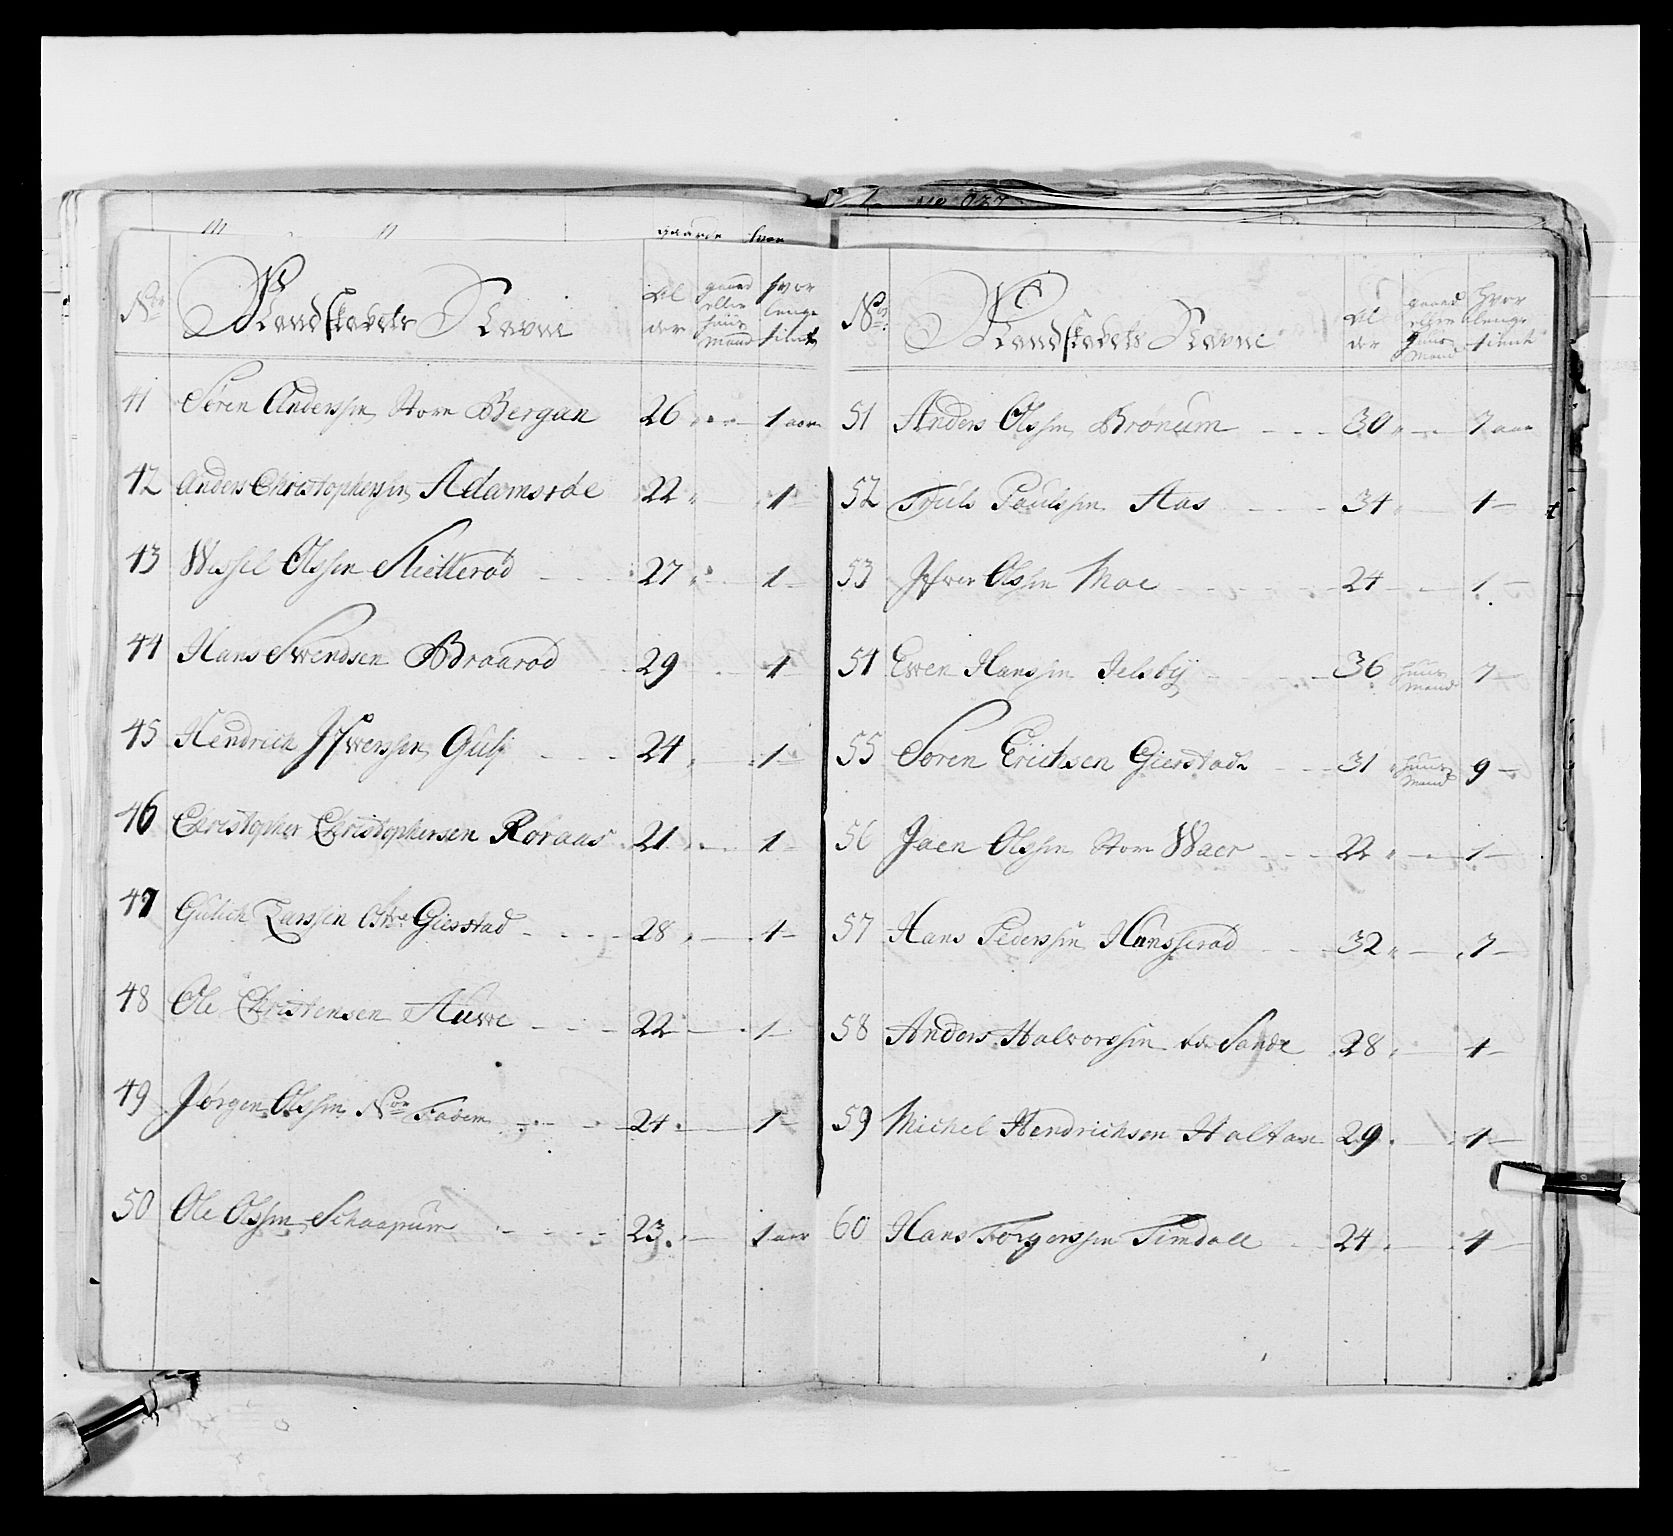 No Mandskabets Navne Al der gaard eller huus mand hvor lenge tient
41 Søren Anderssen Store Bergan 26 1 aar
42 Anders Christophersen Adamsrøe 22 1
43 Wessel Olssen Slitterød 27 1
44 Hans Swendsen Braarød 29 1
45 Hendrich Ifwerssen Gulj 24 1
46 Christopher Christophersen Roraas 21 1
47 Gulich Larssen Østre Gierstad 28 1
48 Ole Christensen Auwe 22 1
49 Jørgen Olssen Nor Fadem 24 1
50 Ole Olssen Schaapum 23 1 aar
No Mandskabets Navne Al der gaard eller huus mand hvor lenge tient
51 Anders Olssen Brønum 30 7 aar
52 Truls Paulssen Aas 34 1
53 Ifwer Olssen Moe 24 1
54 Ewen Hanssen Jelsbÿ 36 huus mand 7
55 Søren Erichsen Gierstad 31 huus mand 9
56 Joen Olssen Store Waer 22 1
57 Hans Pederssen Hansserød 32 7
58 Anders Halvorssen Sande 28 1
59 Michel Hendrichsen Haltan 29 1
60 Hans Torgerssen Timdall 24 1